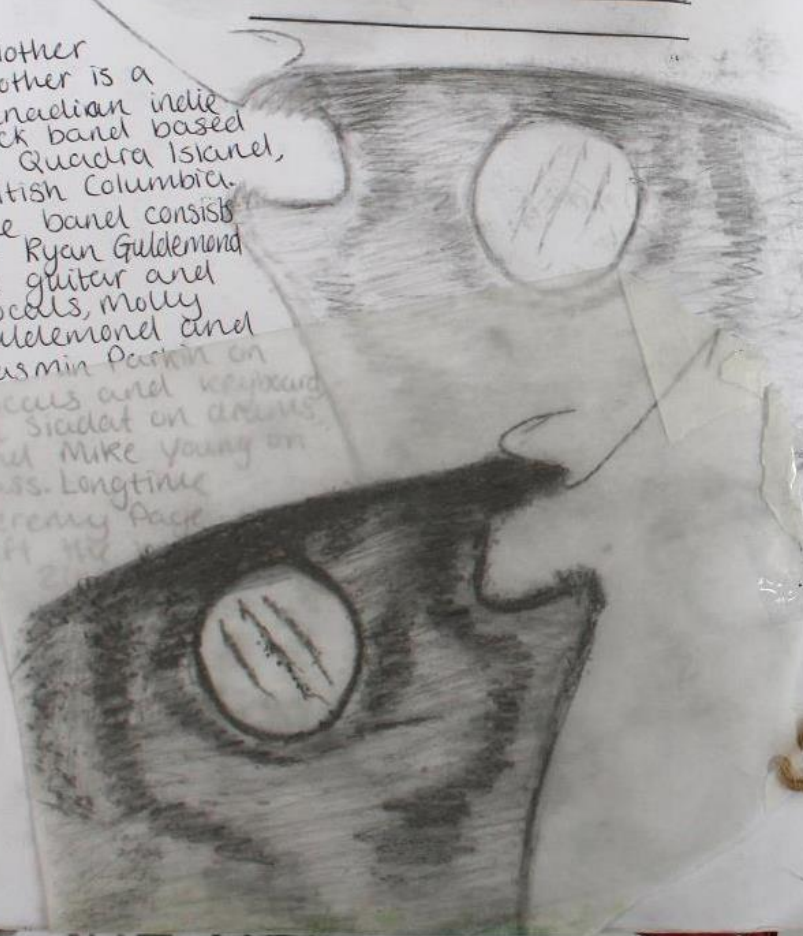 other
other is a
nadian indie
ck band based
Quadra Island,
itish Columbia.
e band consists
Ryan Guldemond
guitar and
ocals, Molly
uldemond and
asmin Parkin on
ocals and keyboard,
Siadat on drums,
nd Mike Young on
ass. Longtime
eremy Page